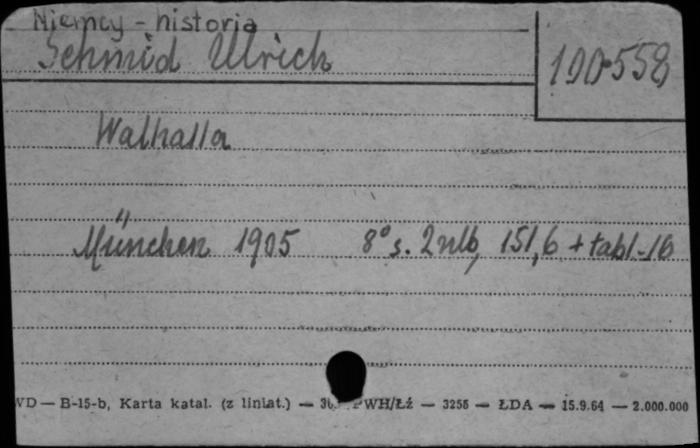 Niemcy - historia
Schmid Ulrich
190558
Walhalla
München 1905 8° s. 2nlb, 151,6 + tabl. 16
WD — B-15-b, Karta katal. (z liniat.) — PWH/Łź — 3255 — ŁDA — 15.9.64 — 2.000.000